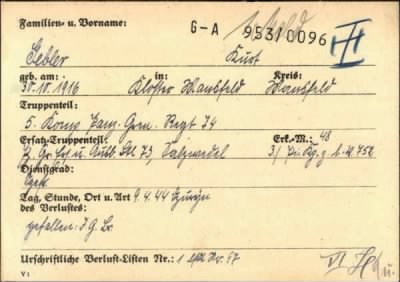 Familien- u. Vorname: G-A 953/0096 III
Gebler Kurt
geb. am: in: Kreis:
30.10.1916 Kloster Mansfeld Mansfeld
Truppenteil:
5. Komp Panz. Gren. Regt 74
Ersatz-Truppenteil: Erk.-M.: 48
u. Ausb. Btl 73, Salzwedel 3/
Dienstgrad:
Gefr.
Tag, Stunde, Ort u. Art 9.4.44
des Verlustes:
gefallen: J.G.
Urschriftliche Verlust-Listen Nr.: 1 Nr. 97
V 1